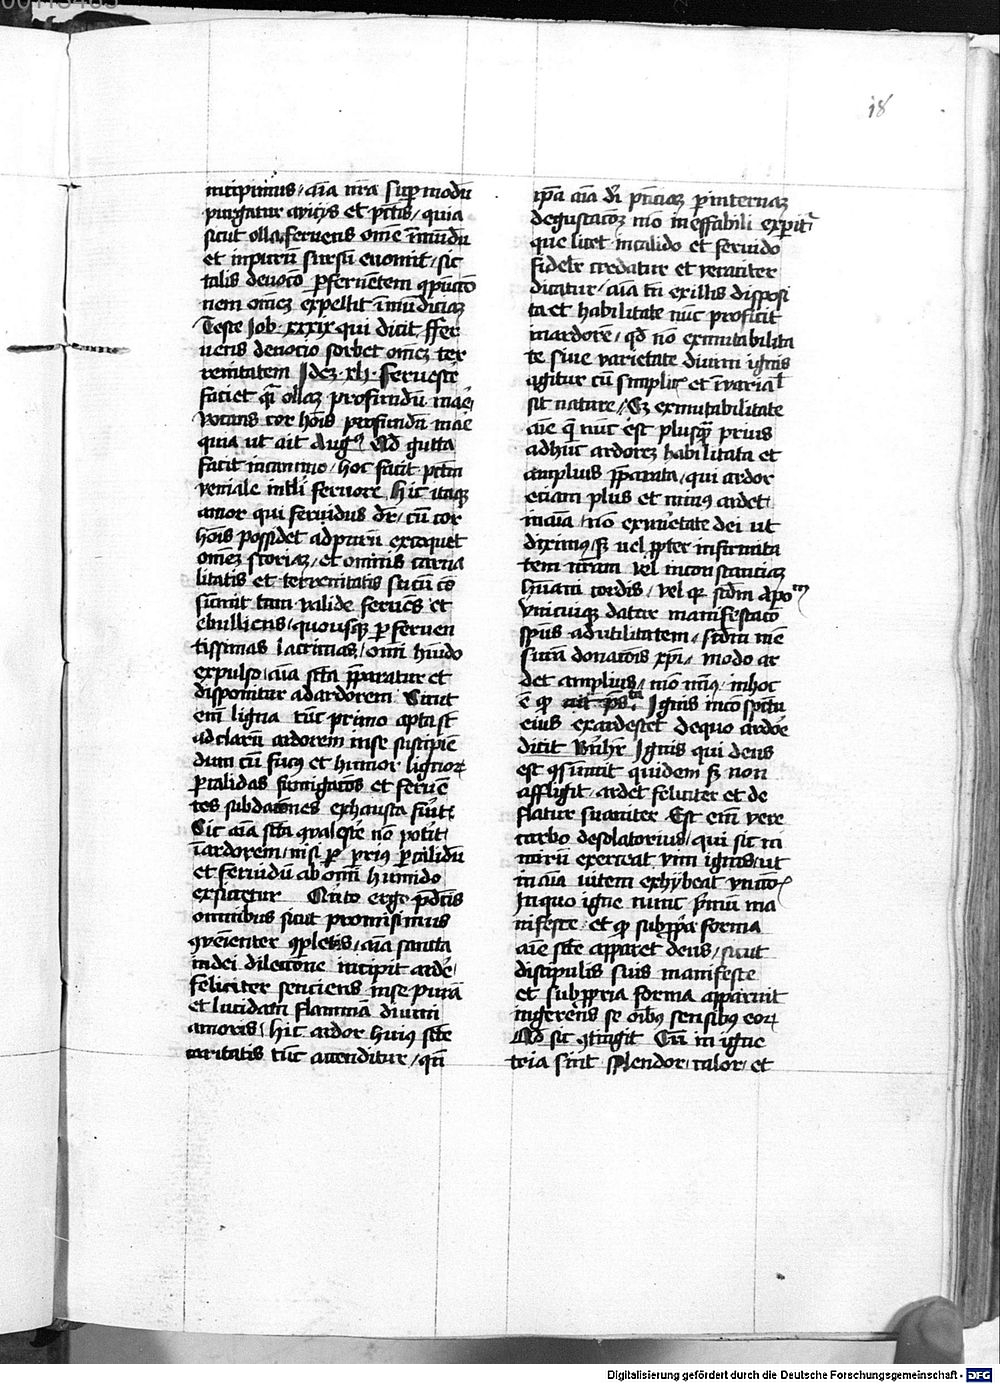 18
incipimus / aīa nr̄a suꝑ modū
purgatur a viciis et pctīs / quia
sicut olla feruens omē īmūdū
et inpurū sursū euomit / sic
talis deuocō ꝑ feruētem ꝯpūctō
nem omēꝫ expellit īmūdiciaꝫ
Teste Job · xxxix · qui dicit / ffer
uens deuocio sorbet omēꝫ ter
renitatem Jdeꝫ · xli · Feruesce
faciet qͣ ollaꝫ profundū mae
vocans cor hoīs profundū mae
quia ut ait Augꝰ Qd gutta
facit in camino / hoc facit pctm̄
veniale in tali feruore Hic itaqꝫ
amor qui feruidus dr̄ / cū cor
hoīs possidet ad purū excoquet
omēꝫ scoriaꝫ / et omnis carna
litatis et terrenitatis
sūmit tam valide feruēs et
ebulliens / quousqꝫ ꝑ feruen
tissimas lacrimas / omī hūido
expulso / aīa scā p̄paratur et
disponitur ad ardorem Sicut
em̄ ligna tūc primo apta sūt
ad clarū ardorem in se suscipiē
dum cū fūꝰ et humor lignoꝝ
ꝑ calidas fumigacōes et feruē
tes subdacōnes exhausta fūit
Sic aīa scā qualescē nō potīt
ī ardorem / nisi ꝑ prius ꝑ calidū
et feruidū ab omī humido
exsiccetur Qūto ergo p̄dcīs
omnibus sicut promisimus
ꝯueniēter ꝯpletis / aīa sancta
in dei dilectōne incipit ardē
feliciter senciens in se purā
et lucidam flammā diuini
amoris / hic ardor huiꝰ scē
caritatis tūc accenditur / qn̄
ip̄a aīa dī pn̄ciaꝫ ꝑ internaꝫ
degustacōeꝫ mō ineffabili exꝑitͬ
que licet in calido et feruido
fideliē credatur et veraciter
dicatur / aīa tn̄ ex illis disposi
ta et habilitate nūc proficit
in ardorē / qd nō ex mutabilita
te siue varietate diuini ignis
agitur cū simplicͬ et īuariaƚ
sit nature / Sꝫ ex mutabilitate
aīe q̄ nūc est plusqͣꝫ prius
adhuc ardoreꝫ habilitata et
amplius p̄parata / qui ardor
eciam plus et minꝰ ardet
in aīa / nō ex vͣietate dei ut
diximꝰ / sꝫ uel ꝓpter infirmita
tem nr̄am vel inconstanciaꝫ
hūani cordis / vel qꝛ scd̄m Apoᵐ
vnicuiqꝫ datur manifestacō
spūs ad utilitatem / scdm̄ mē
surā donacōis xpī / modo ar
det amplius / mō minꝰ in hoc
ē qꝛ Jgnis in cōspctu
eius exardescet de quo ardōe
dicit Bnh̄r Jgnis qui deus
est ꝯsūmit quidem sꝫ non
affligit / ardet feliciter et de
flatur suauiter Est em̄ vere
carbo desolatorius / qui sic in
nimirū exerceat vim ignis / ut
in aīa vicem exhybeat vnctōīs
Jn quo igne nunc primū ma
nifeste / et qꝛ sub ꝓpͥa forma
aīe scē apparet deus / sicut
discipulis suis manifeste
et sub ꝓpria forma apparuit
ingerens se oībꝰ sensibꝰ eoꝝ
Qd sic ꝯtingit Cū in igne
tria sint splendor / calor / et
Digitalisierung gefördert durch die Deutsche Forschungsgemeinschaft - DFG